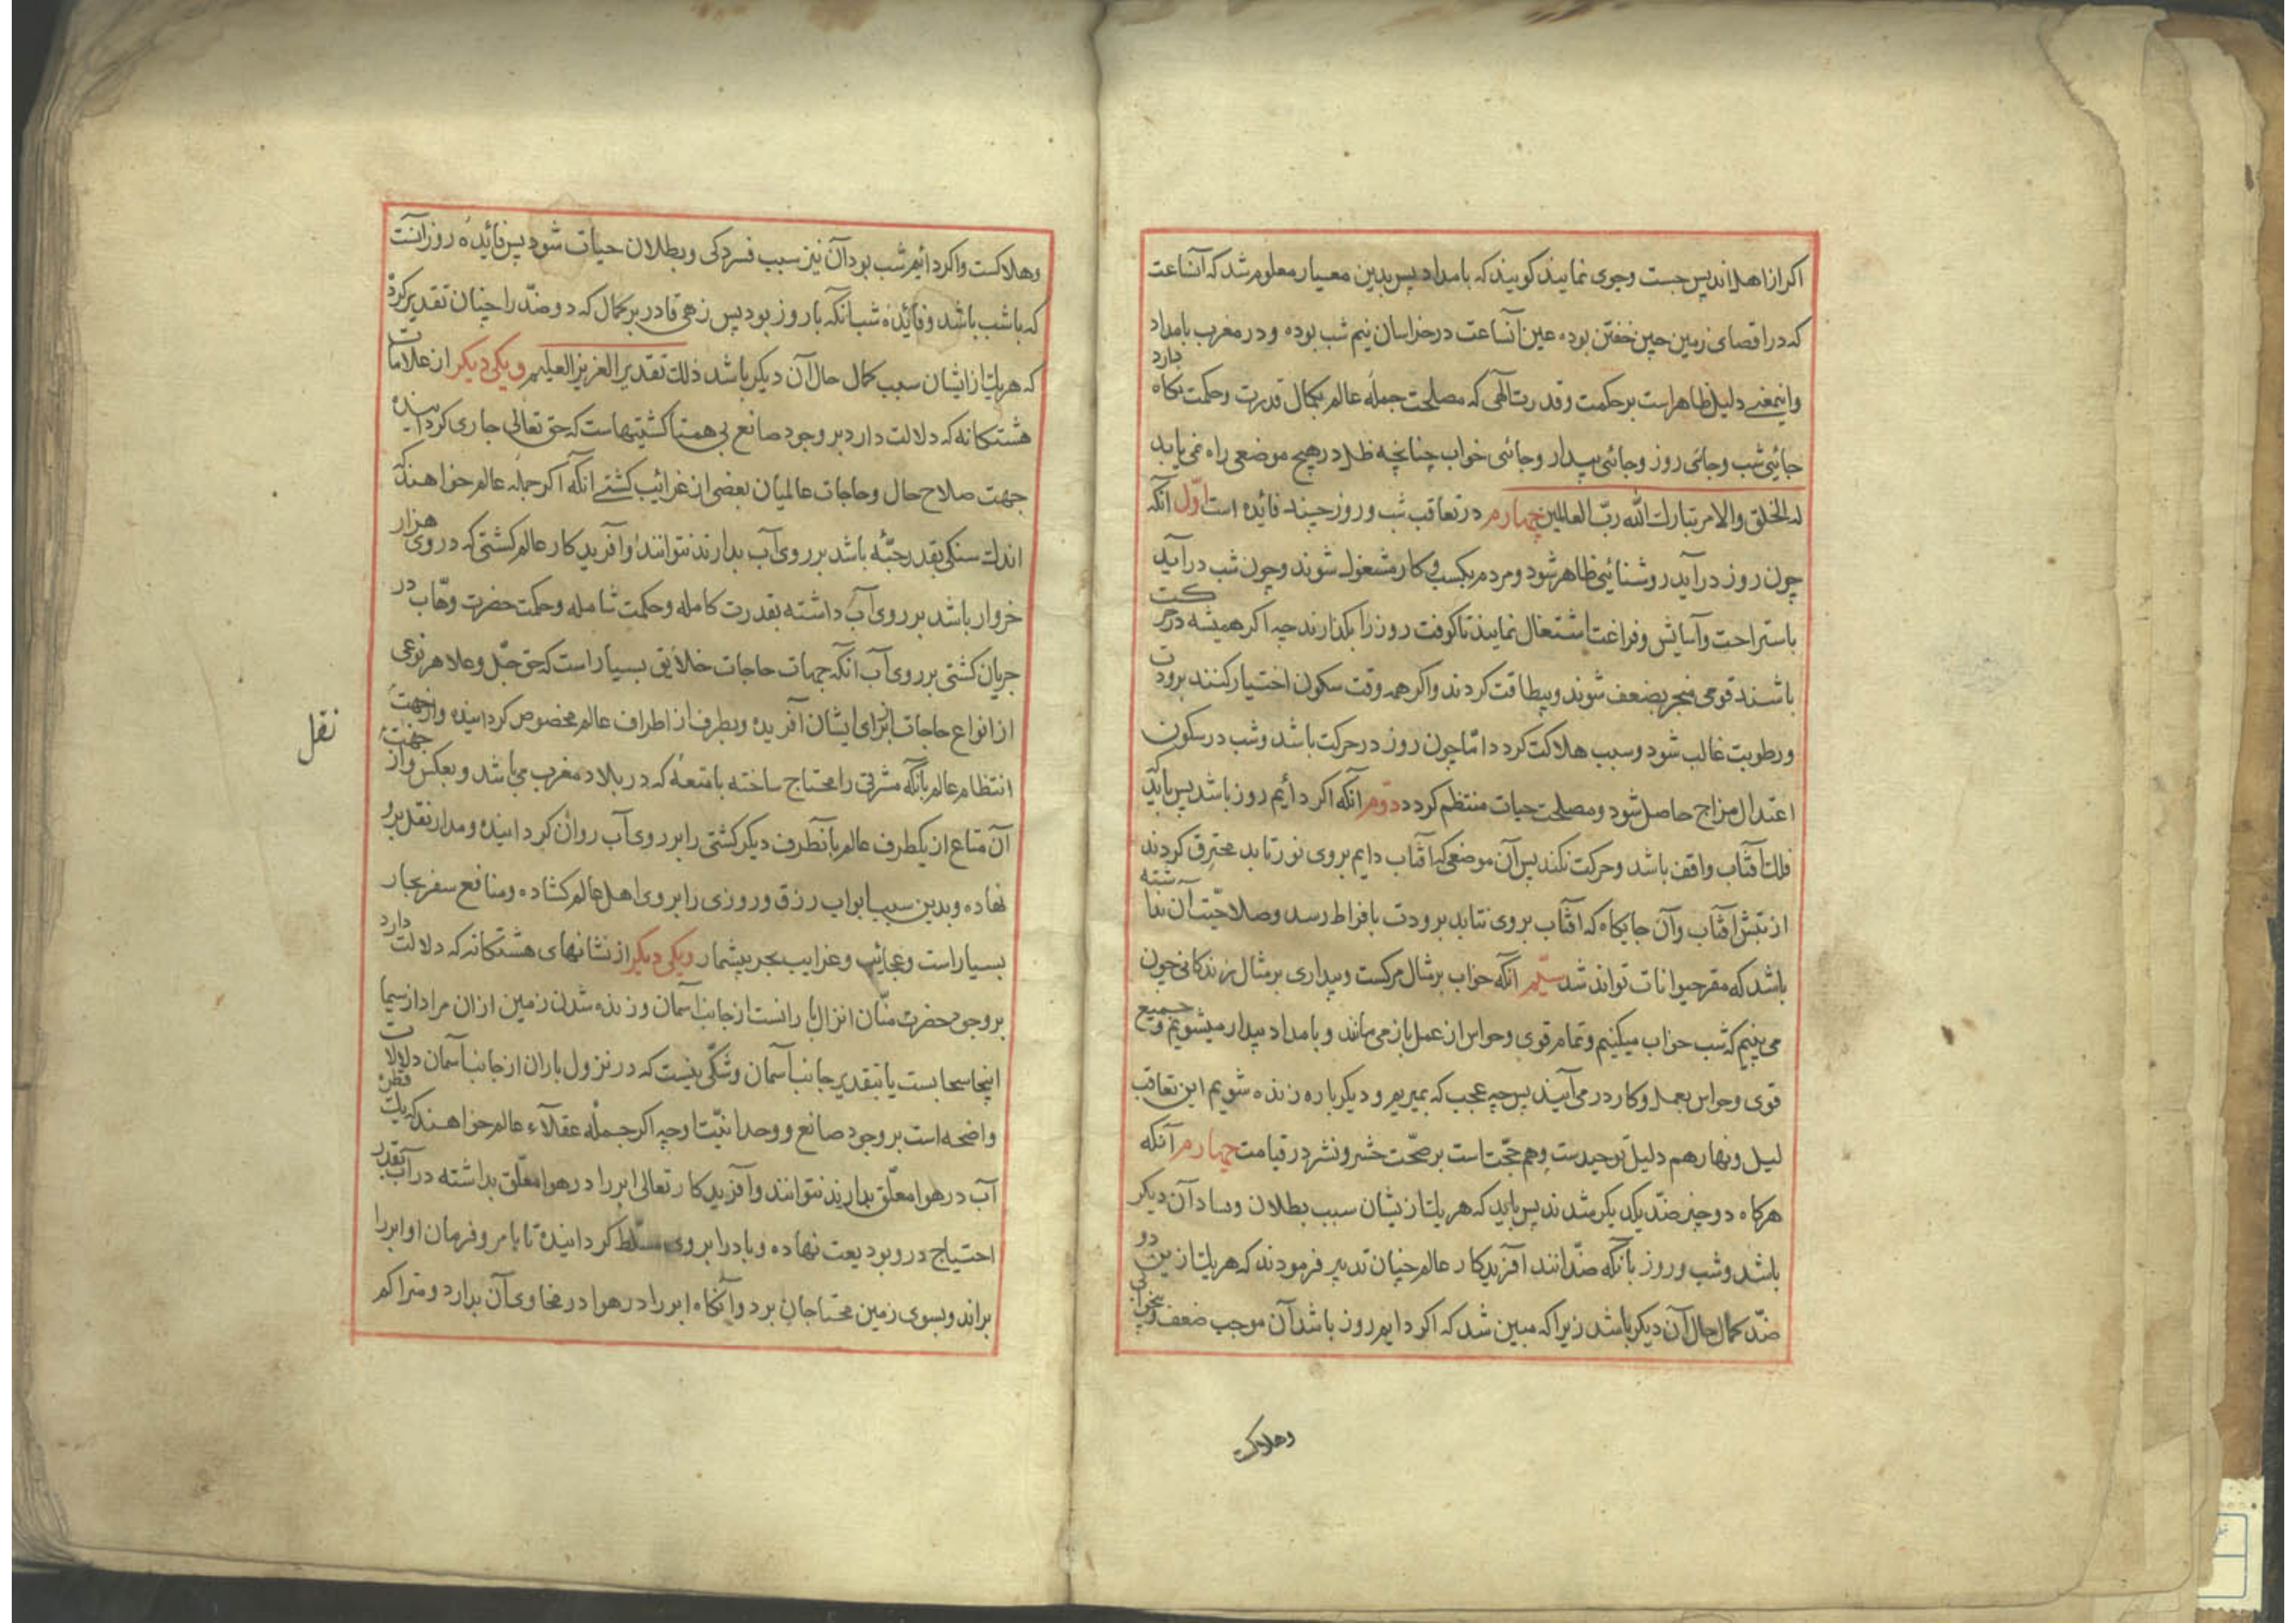 اکر از اهل اندلس جست و جوی نمایند کویند که بامداد پس بدین معیار معلوم شد که آنساعت
که در اقصای زمین حین خفتن بوده عین آنساعت در خراسان نیم شب بوده و در مغرب بامداد
واینمعنی دلیل ظاهر است بر حکمت و قدرت آلهی که مصلحت جمله عالم بکمال قدرت و حکمت نکاه دارد
جائی شب و جائی روز و جائی بیدار و جائی خواب چنانچه خلل در هیچ موضعی راه نمی یابد
له الخلق والامر تبارک الله ربّ العالمین چهارم در تعاقب شب و روز چند فائده است اوّل آنکه
چون روز در آید روشنائی ظاهر شود و مردم بکسب و کار مشغول شوند و چون شب در آید
باستراحت و آسایش و فراغت اشتغال نمایند تا کوفت روز را بکذارند چه اکر همیشه در حرکت
باشند قومی منجر بضعف شوند و بیطاقت کردند و اکر همه وقت سکون اختیار کنند برودت
و رطوبت غالب شود و سبب هلاکت کردد امّا چون روز در حرکت باشد و شب در سکون
اعتدال مزاج حاصل شود و مصلحت حیات منتظم کردد دوّم آنکه اکر دأیم روز باشد پس باید که
فلک آفتاب واقف باشد و حرکت نکند پس آن موضعی که آفتاب دایم بروی نور تابد محترق کردند
از تبش آفتاب و آن جایکاه که آفتاب بروی نتابد برودت بافراط رسد و صلاحیّت آن نداشته
باشد که مقر حیوانات تواند شد سیّم آنکه خواب بر مثال مرکست و بیداری بر مثال زندکانی چون
می بینیم که شب خواب میکنیم و تمام قوی و حواس از عمل باز می ماند و بامداد بیدار میشویم و جمیع
قوی و حواس بعمل و کار در می آیند پس چه عجب که بمیریم و دیکر باره زنده شویم این تعاقب
لیل و نهار هم دلیل توحیدست و هم حجّت است بر صحّت حشر و نشر در قیامت چهارم آنکه
هرکاه دو چیز ضدّ یکدیکر شدند پس باید که هریک از نیشان سبب بطلان و فساد آن دیکر
باشد و شب و روز بآنکه ضدّانند آفریدکار عالم چنان تدبیر فرمودند که هریک ازین دو
ضدّ کمال حال آن دیکر باشد زیرا که مبین شد که اکر دایم روز باشد آن موجب ضعف و بیخوابی
وهلاکت
وهلاکست و اکر دائیم شب بود آن نیز سبب فسردکی و بطلان حیات شود پس فائیدهٔ روز آنست
که باشب باشد و فائیدهٔ شب آنکه باروز بود پس زهی قادر بر کمال که دو ضدّ را چنان تقدیر کرد
که هریک از ایشان سبب کمال حال آن دیکر باشد ذلک تقدیر العزیز العلیم و یکی دیکر از علامات
هشتکانه که دلالت دارد بر وجود صانع بی همتا کشتیهاست که حق تعالی جاری کردانیده
جهت صلاح حال و حاجات عالمیان بعضی از غرائیب کشتی آنکه اکر جمله عالم خواهند که
اندک سنکی بقدر حبّه باشد بر روی آب بدارند نتوانند و آفریدکار عالم کشتی که در وی هزار
خروار باشد بر روی آب داشته بقدرت کامله و حکمت شامله و حکمت حضرت وهّاب در
جریان کشتی بر روی آب آنکه جهات حاجات خلایق بسیار است که حق جلّ وعلا هر نوعی
از انواع حاجات برای ایشان آفریده و بطرف از اطراف عالم مخصوص کردانیده و از جهت
انتظام عالم بآنکه مشرقی را محتاج ساخته بامتعهٔ که در بلاد مغرب می باشد و بعکس و از جهت
نقل
آن متاع از یکطرف عالم بآنطرف دیکر کشتی را بر روی آب روان کردانیده و مدار نقل برو
نهاده و بدین سبب ابواب رزق و روزی را بروی اهل عالم کشاده و منافع سفر بحار
بسیار است و عجائیب و غرایب بحر بیشمار و یکی دیکر از نشانهای هشتکانه که دلالت دارد
بر وجود حضرت منّان انزال بارانست از جانب آسمان و زنده شدن زمین از ان مراد از سما
اینجا سحابست یا بتقدیر جانب آسمان و شکّی نیست که در نزول باران از جانب آسمان دلالات
واضحه است بر وجود صانع و وحدانیّت او چه اکر جملهٔ عقلآء عالم خواهند که یک قطره
آب در هوا معلّق بدارند نتوانند و آفریدکار تعالی ابر را در هوا معلّق بداشته در آب بقدر
احتیاج در و بودیعت نهاده و باد را بروی مسلّط کردانیده تا بامر و فرمان او ابر را
براند و بسوی زمین محتاجان برد و آنکاه ابر را در هوا در محاوی آن بدارد و متراکم